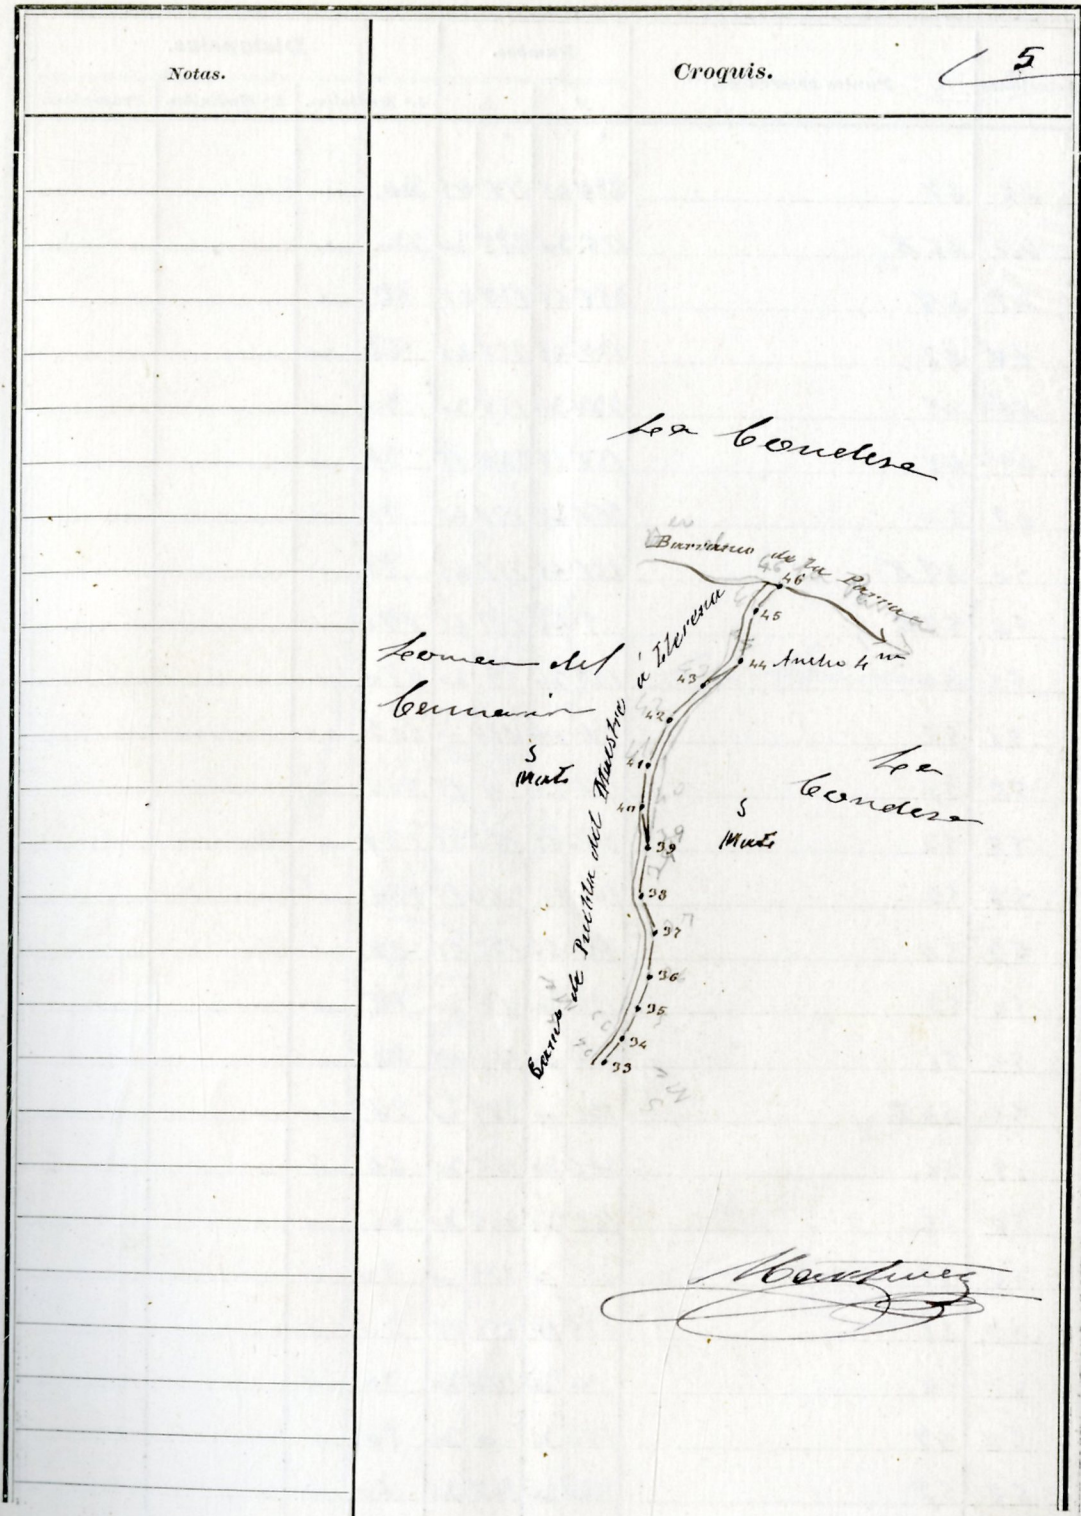 Notas.
Croquis.
5
La Condesa
Barranco de la Parra
46
45
44 Ancho 4 m
43
42
41
40
39
38
37
36
35
34
33
Camº de Puebla del Maestre á Llerena
Loma del
S
Monte
S
Monte
La
Condesa
Martinez